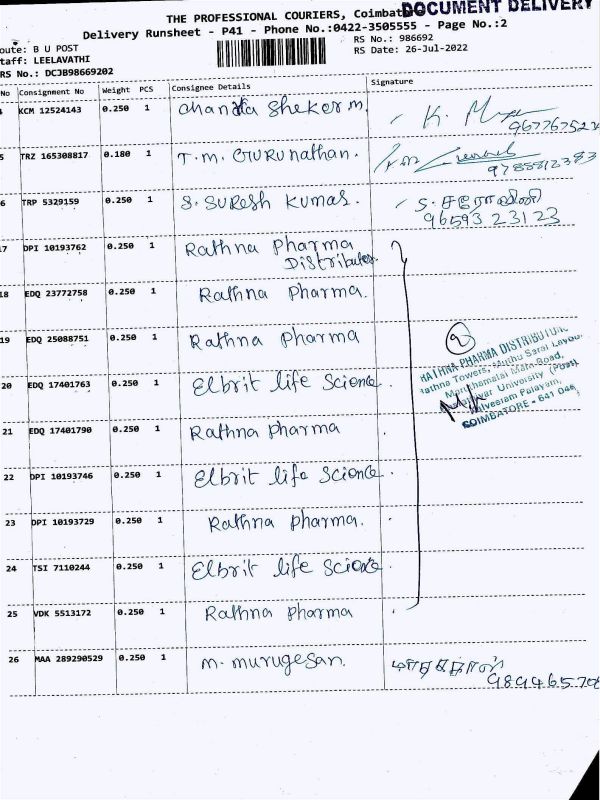 THE PROFESSIONAL COURIERS, Coimbat
DOCUMENT DELIVERY
Delivery Runsheet - P41 - Phone No.:0422-3505555 - Page No.:2
oute: B U POST
taff: LEELAVATHI
RS No.: DCJB98669202
RS No.: 986692
RS Date: 26-Jul-2022
No Consignment No Weight PCS Consignee Details Signature
4 KCM 12524143 0.250 1 Chandra Sheker m. K. 967767523
5 TRZ 165308817 0.180 1 T.M. GURUnathan. 9788812383
6 TRP 5329159 0.250 1 S. SURESH KUMAR. S. சரோஜினி 96593 23123
17 DPI 10193762 0.250 1 Rathna Pharma
Distributor.
18 EDQ 23772758 0.250 1 Rathna Pharma.
19 EDQ 25088751 0.250 1 Rathna Pharma
20 EDQ 17401763 0.250 1 Elbrit life Science.
21 EDQ 17401790 0.250 1 Rathna Pharma
22 DPI 10193746 0.250 1 Elbrit life Science.
23 DPI 10193729 0.250 1 Rathna Pharma.
24 TSI 7110244 0.250 1 Elbrit life Science
25 VDK 5513172 0.250 1 Rathna Pharma
2
RATHNA PHARMA DISTRIBUTOR
Rathna Towers, Muthu Sarai Layou
Maruthamalai Main Road,
University (Post)
Kalveeram Palayam,
COIMBATORE - 641 046
26 MAA 289290529 0.250 1 m. murugesan. 989465708